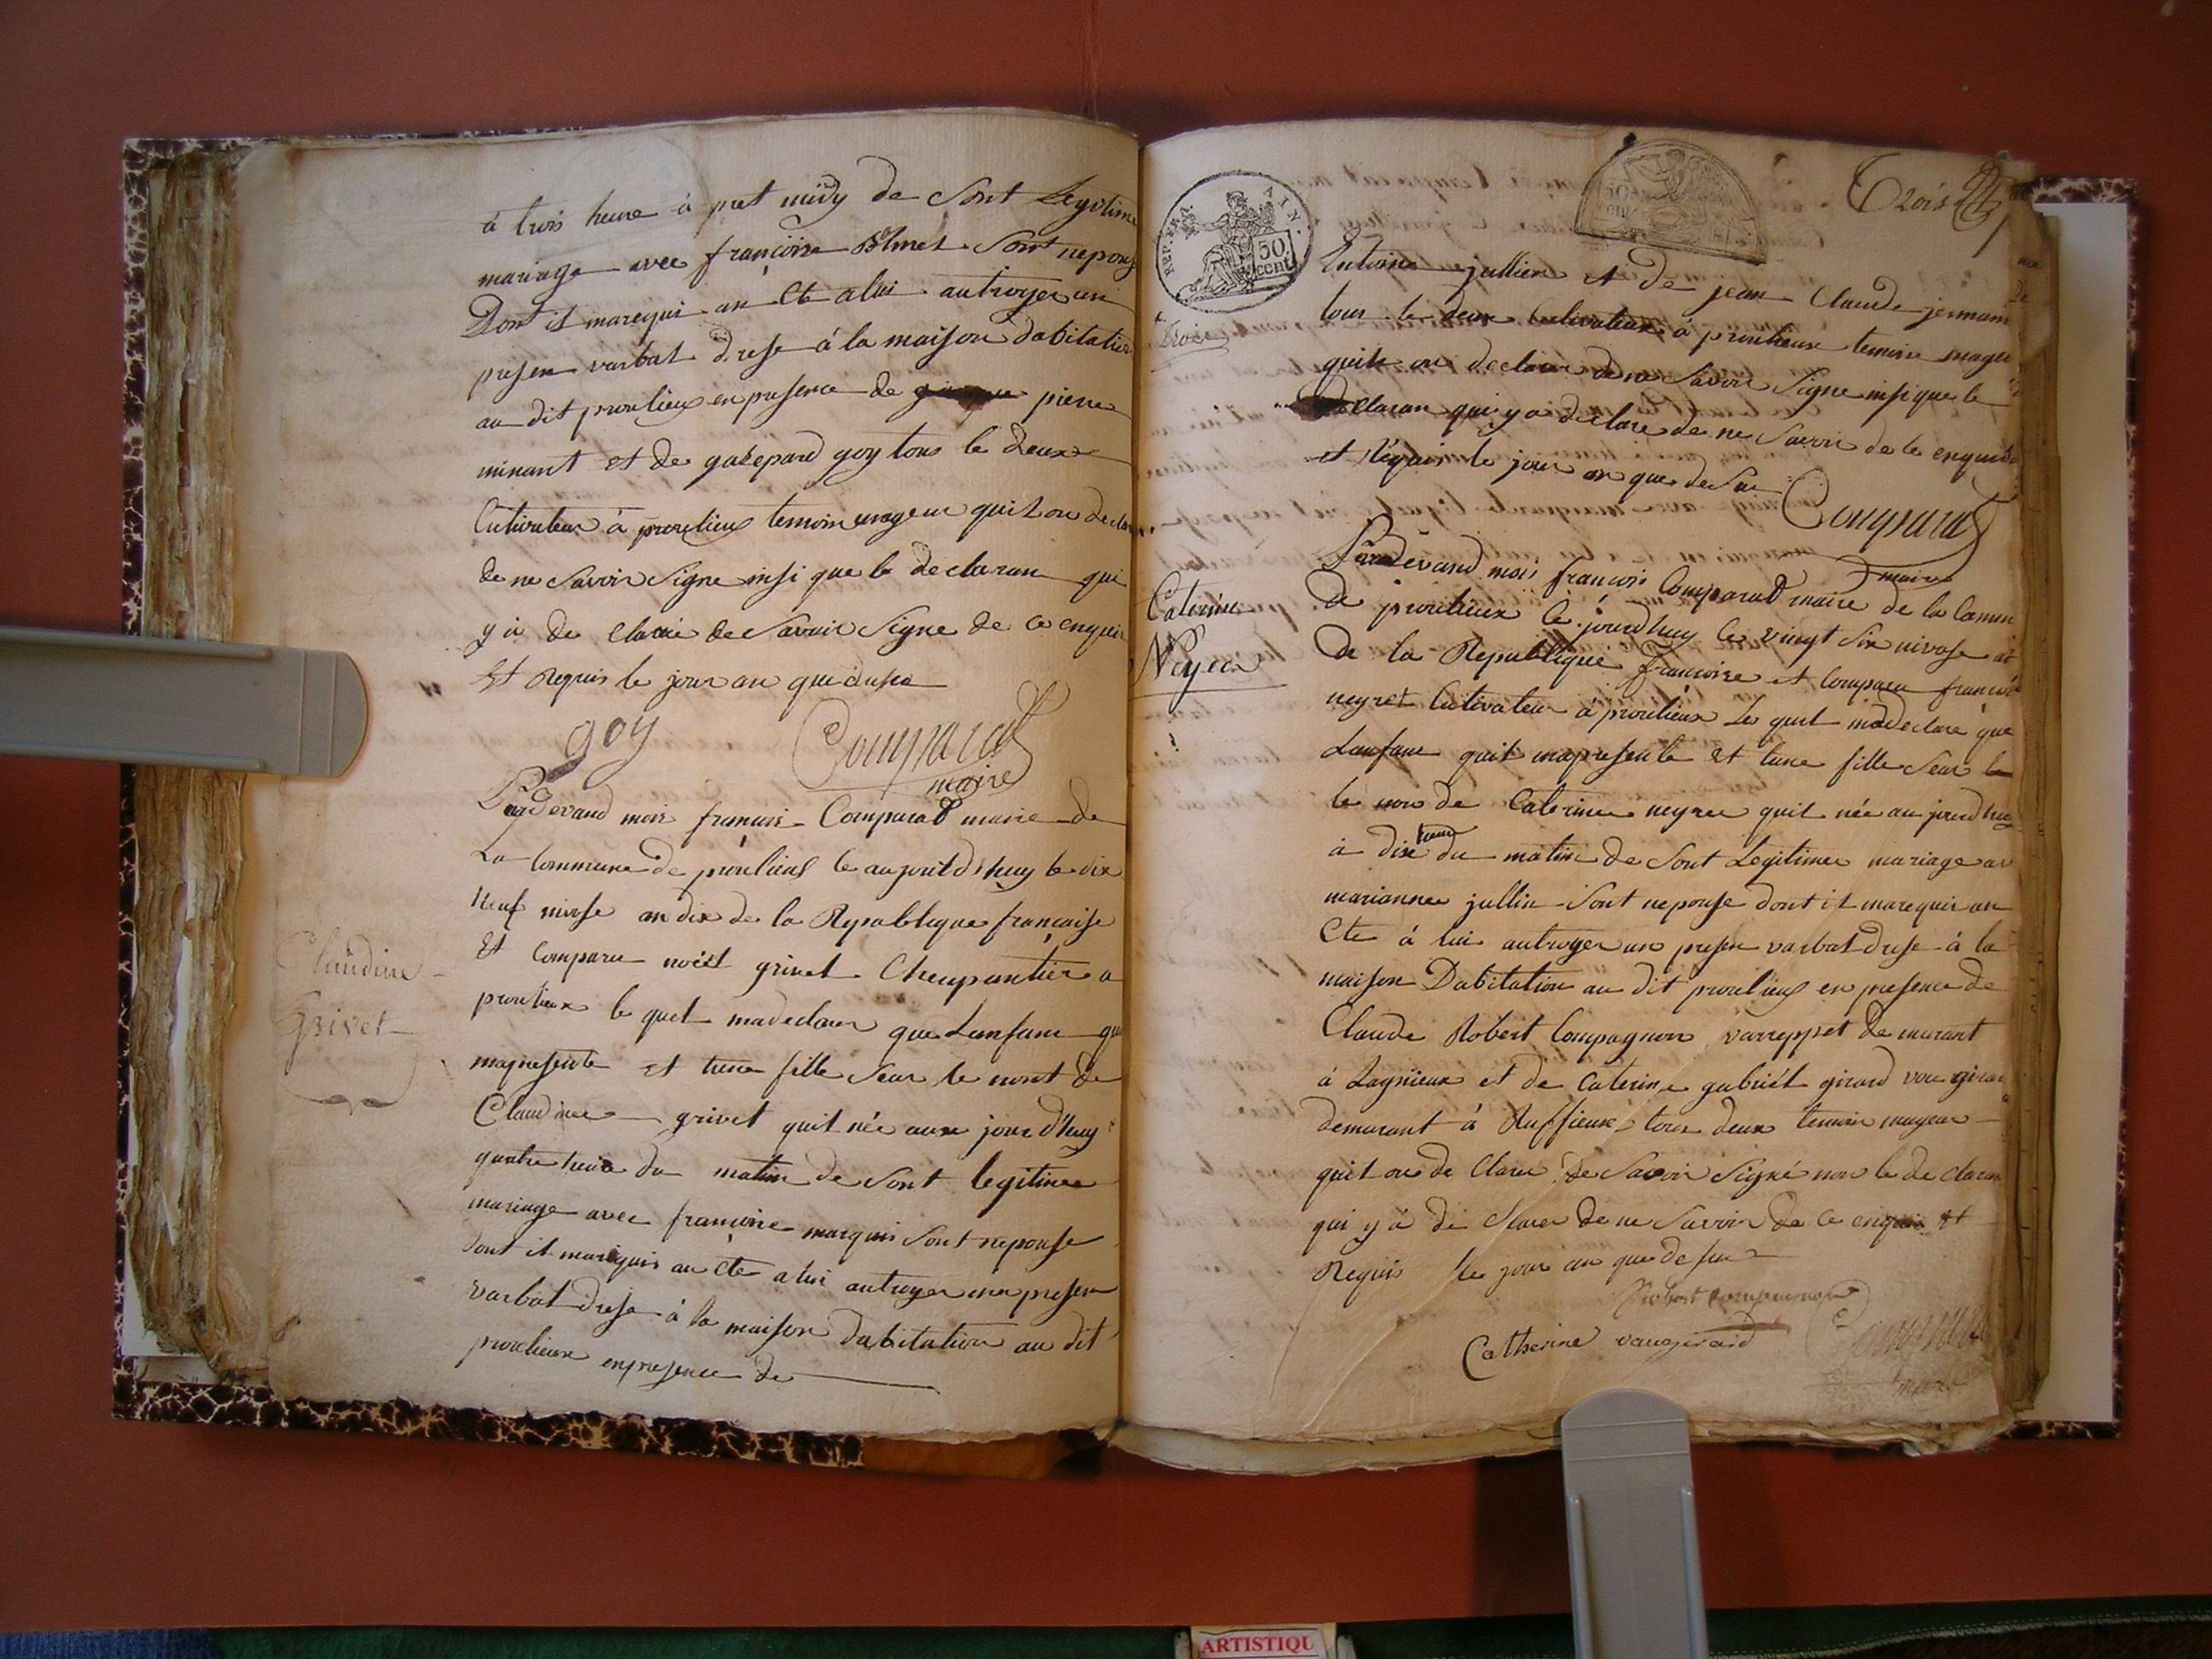 a trois heure à pret midy de Sont Legitime
mariage avec françoise Sont nepouse
Dont it marequi an Cte a lui autroyer un
presen varbat drese à la maison dabitation
au dit proulieux en presence de pierre
minant et de gasepard goy tous le deux
Cultivateur à proulieux temoin mageur quit on declare
de ne Savoir Signe insi que le declaran qui
y à de Clare de Savoir Signe de ce enquis
Et Requis le jour an que dusu
goy
Comparat
maire
Pardevand mois francois Comparat maire de
La Commune de proulieux le aujourd'huy le dix
Neuf nivose an dix de la Republique française
Et Comparu noëll grivet Cheupantier a
proulieux le quel madeclarer que Lanfant qui
mapresente et tune fille Seur le nont de
Claudine grivet quit née aux jour d'huy
quatre heure du matin de Sont legitime
mariage avec francoise marquis Sont nepouse
dont it marequis an Cte a lui autroyer un presen
varbat drese à la maison dabitation au dit
proulieux en presence de
Claudine
Grivet
REP. FRA. AIN.
50
cent
Trois
50
cen
Trois
Entoine jullien et de jean Claude jermain
tous le deux Cultivateur à proulieux temoin mageur
quit on declarer de ne Savoir Signe insi que le
declaran qui y a declare de ne Savoir de ce enquis
et Réquis le jour an que de Su
Comparat
maire
Caterine
Neyret
Pardevand mois françois Comparat maire de la Commune
de proulieux le jourdhuy le vingt Six nivose an
de la Republique françoise et Comparu françois
neyret Cultivateur à proulieux Le quel ma declare que
Lanfant quit mapresente et tune fille Seur le
le nom de Caterine neyret quit née au jourd huy
à dixe heure du matin de Sont Legitime mariage av
marianne jullin Sont nepouse dont it marequir an
Cte à lui autroyer un presen varbat drese à la
maison Dabitation au dit proulieux en presence de
Claude Robert Compagnon demurant
à Lagnieux et de Caterine gabriel girard vou girar
demurant à Ruffieux tous deux temoin mageur
quit on de Clare de Savoir Signé non le de claran
qui y à de Clarer de ne Savoir de ce enquis et
Requis le jour an que de sur
Robert Compagnon
Catherine vaugirard
Comparat
maire
ARTISTIQU